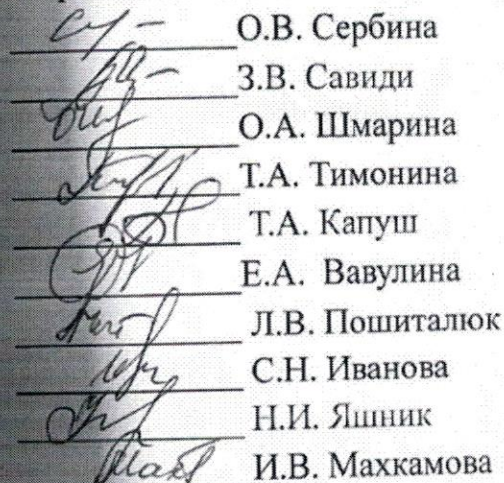 О.В. Сербина
З.В. Савиди
О.А. Шмарина
Т.А. Тимонина
Т.А. Капуш
Е.А. Вавулина
Л.В. Пошиталюк
С.Н. Иванова
Н.И. Яшник
И.В. Махкамова